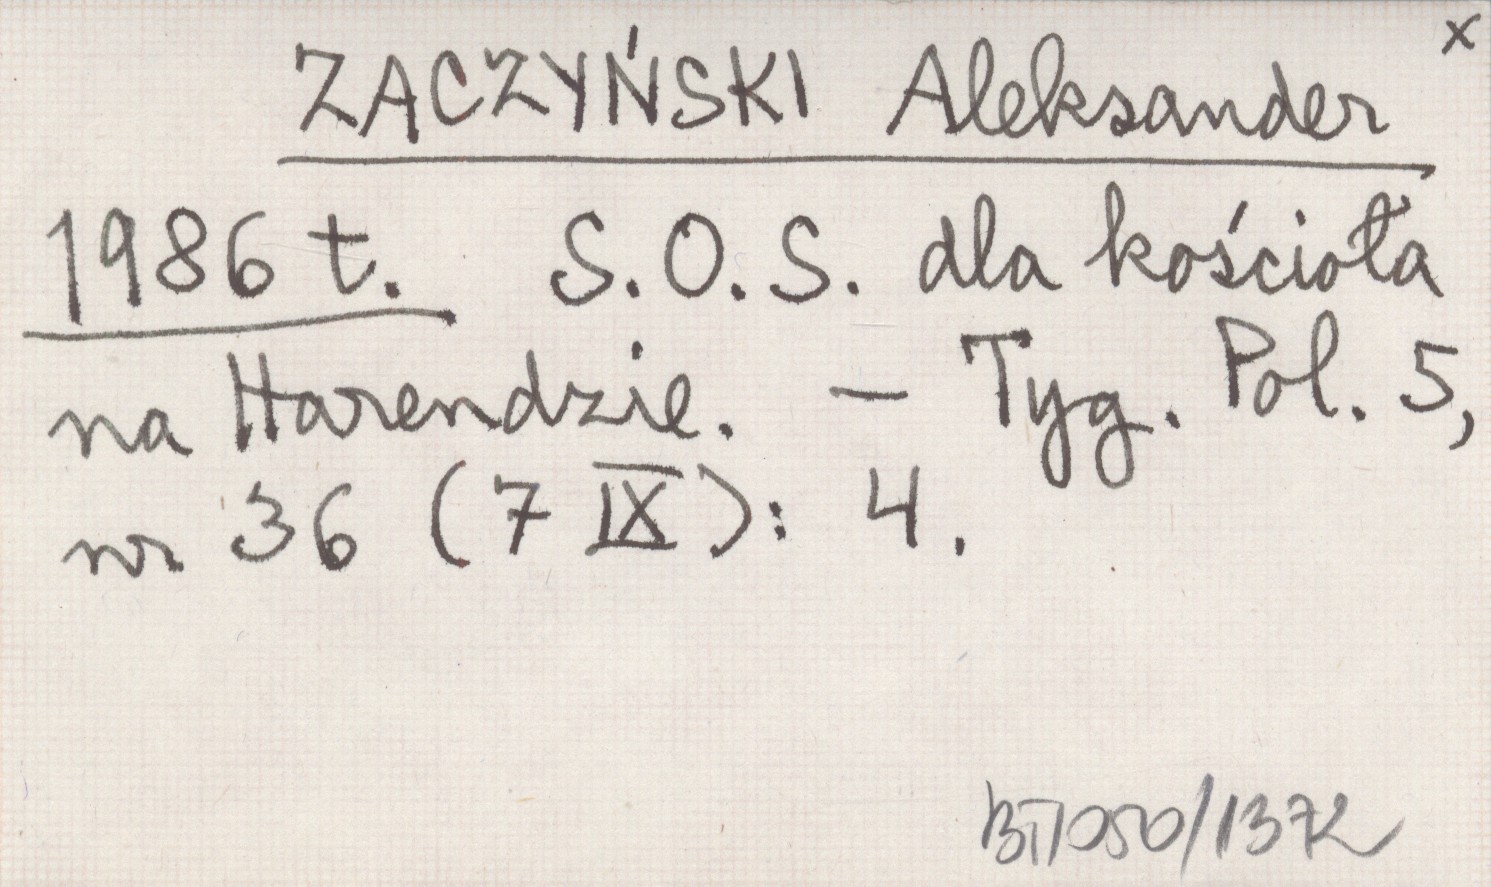 x
ZACZYŃSKI Aleksander
1986 t. S.O.S. dla kościoła
na Harendzie. – Tyg. Pol. 5,
nr 36 (7 IX): 4.
BT/050/1372